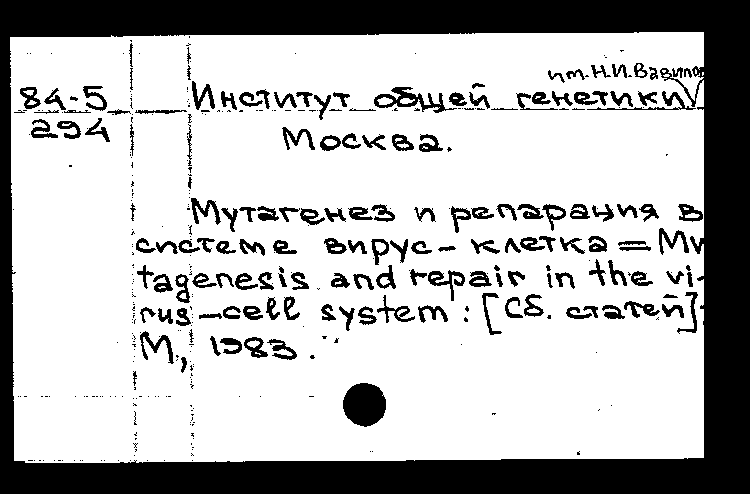 им. Н.И. Вавилов
84-5 Институт общей генетики
294
Москва.
Мутагенез и репарация в
системе вирус-клетка = Mu
tagenesis and repair in the vi-
rus-cell system : [Сб. статей]:
М, 1983.